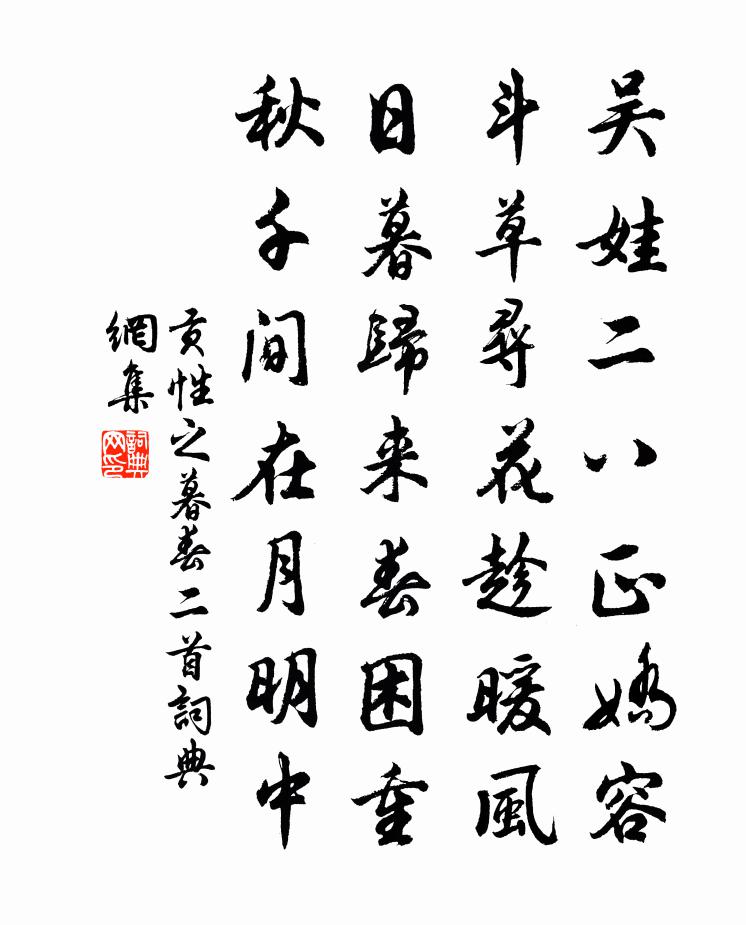 吴娃二八正嬌容
斗草尋花趁暖風
日暮歸来春困重
秋千間在月明中
貢性之暮春二首詞典
網集
詞典網印